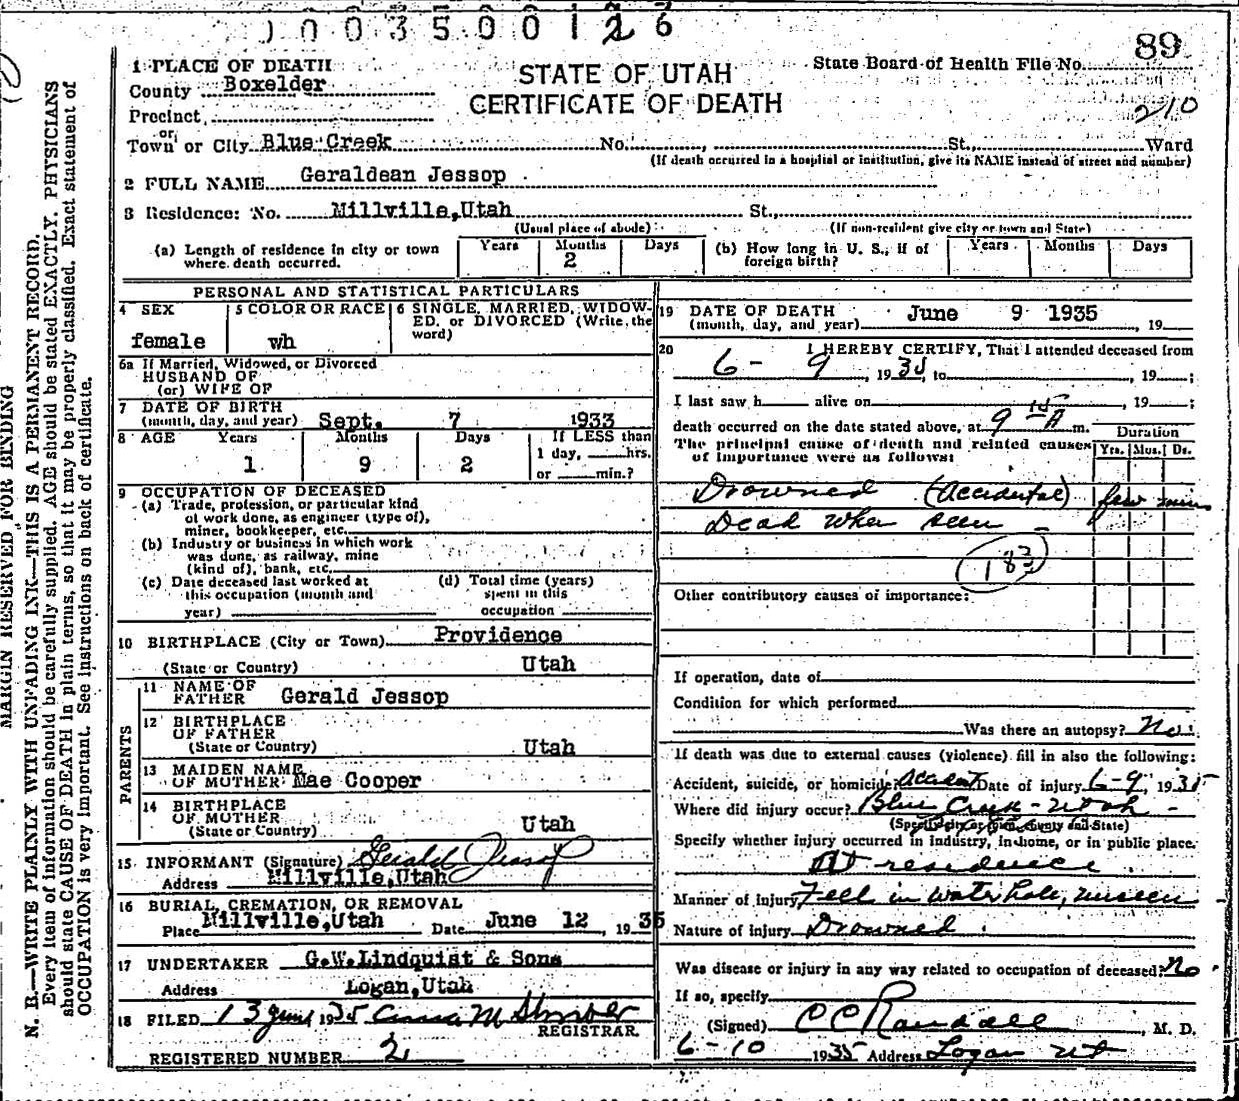 1003500126
89
State Board of Health File No.
210
STATE OF UTAH
CERTIFICATE OF DEATH
1 PLACE OF DEATH
County Boxelder
Precinct
or
Town or City Blue Creek No. , St., Ward
(If death occurred in a hospital or institution, give its NAME instead of street and number)
2 FULL NAME Geraldean Jessop
3 Residence: No. Millville,Utah St.,
(Usual place of abode) (If non-resident give city or town and State)
(a) Length of residence in city or town where death occurred. Years Months 2 Days
(b) How long in U. S., if of foreign birth? Years Months Days
PERSONAL AND STATISTICAL PARTICULARS
4 SEX female
5 COLOR OR RACE wh
6 SINGLE, MARRIED, WIDOW-
ED, or DIVORCED (Write the
word)
6a If Married, Widowed, or Divorced
HUSBAND OF
(or) WIFE OF
7 DATE OF BIRTH
(month, day, and year) Sept. 7 1933
8 AGE Years Months Days If LESS than
1 9 2 1 day, hrs.
or min.?
9 OCCUPATION OF DECEASED
(a) Trade, profession, or particular kind
of work done, as engineer (type of),
miner, bookkeeper, etc.
(b) Industry or business in which work
was done, as railway, mine
(kind of), bank, etc.
(c) Date deceased last worked at
this occupation (month and
year)
(d) Total time (years)
spent in this
occupation
10 BIRTHPLACE (City or Town) Providence
(State or Country) Utah
PARENTS
11 NAME OF
FATHER Gerald Jessop
12 BIRTHPLACE
OF FATHER
(State or Country) Utah
13 MAIDEN NAME
OF MOTHER Mae Cooper
14 BIRTHPLACE
OF MOTHER
(State or Country) Utah
15 INFORMANT (Signature) Gerald Jessop
Address Millville,Utah
16 BURIAL, CREMATION, OR REMOVAL
Place Millville,Utah Date June 12 , 1935
17 UNDERTAKER G.W.Lindquist & Sons
Address Logan,Utah
18 FILED 13 June 1935
REGISTRAR.
REGISTERED NUMBER 2
19 DATE OF DEATH
(month, day, and year) June 9 1935 , 19
20 I HEREBY CERTIFY, That I attended deceased from
6- 9 , 1935, to , 19 ;
I last saw h alive on , 19 ;
death occurred on the date stated above, at 9 15 A m.
The principal cause of death and related causes
of importance were as follows:
Duration
Yrs. Mos. Ds.
Drowned (Accidental) few mins
Dead when seen
183
Other contributory causes of importance:
If operation, date of
Condition for which performed
Was there an autopsy? No.
If death was due to external causes (violence) fill in also the following:
Accident, suicide, or homicide? Accident Date of injury 6-9, 1935
Where did injury occur? Blue Creek - Utah -
(Specify city or town, county and State)
Specify whether injury occurred in industry, in home, or in public place.
At residence.
Manner of injury Fell in water hole, unseen
Nature of injury Drowned.
Was disease or injury in any way related to occupation of deceased? No
If so, specify
(Signed) C C Randall , M. D.
6-10 1935 Address Logan Ut
MARGIN RESERVED FOR BINDING
N. B.—WRITE PLAINLY WITH UNFADING INK—THIS IS A PERMANENT RECORD.
Every item of information should be carefully supplied. AGE should be stated EXACTLY. PHYSICIANS
should state CAUSE OF DEATH in plain terms, so that it may be properly classified. Exact statement of
OCCUPATION is very important. See instructions on back of certificate.